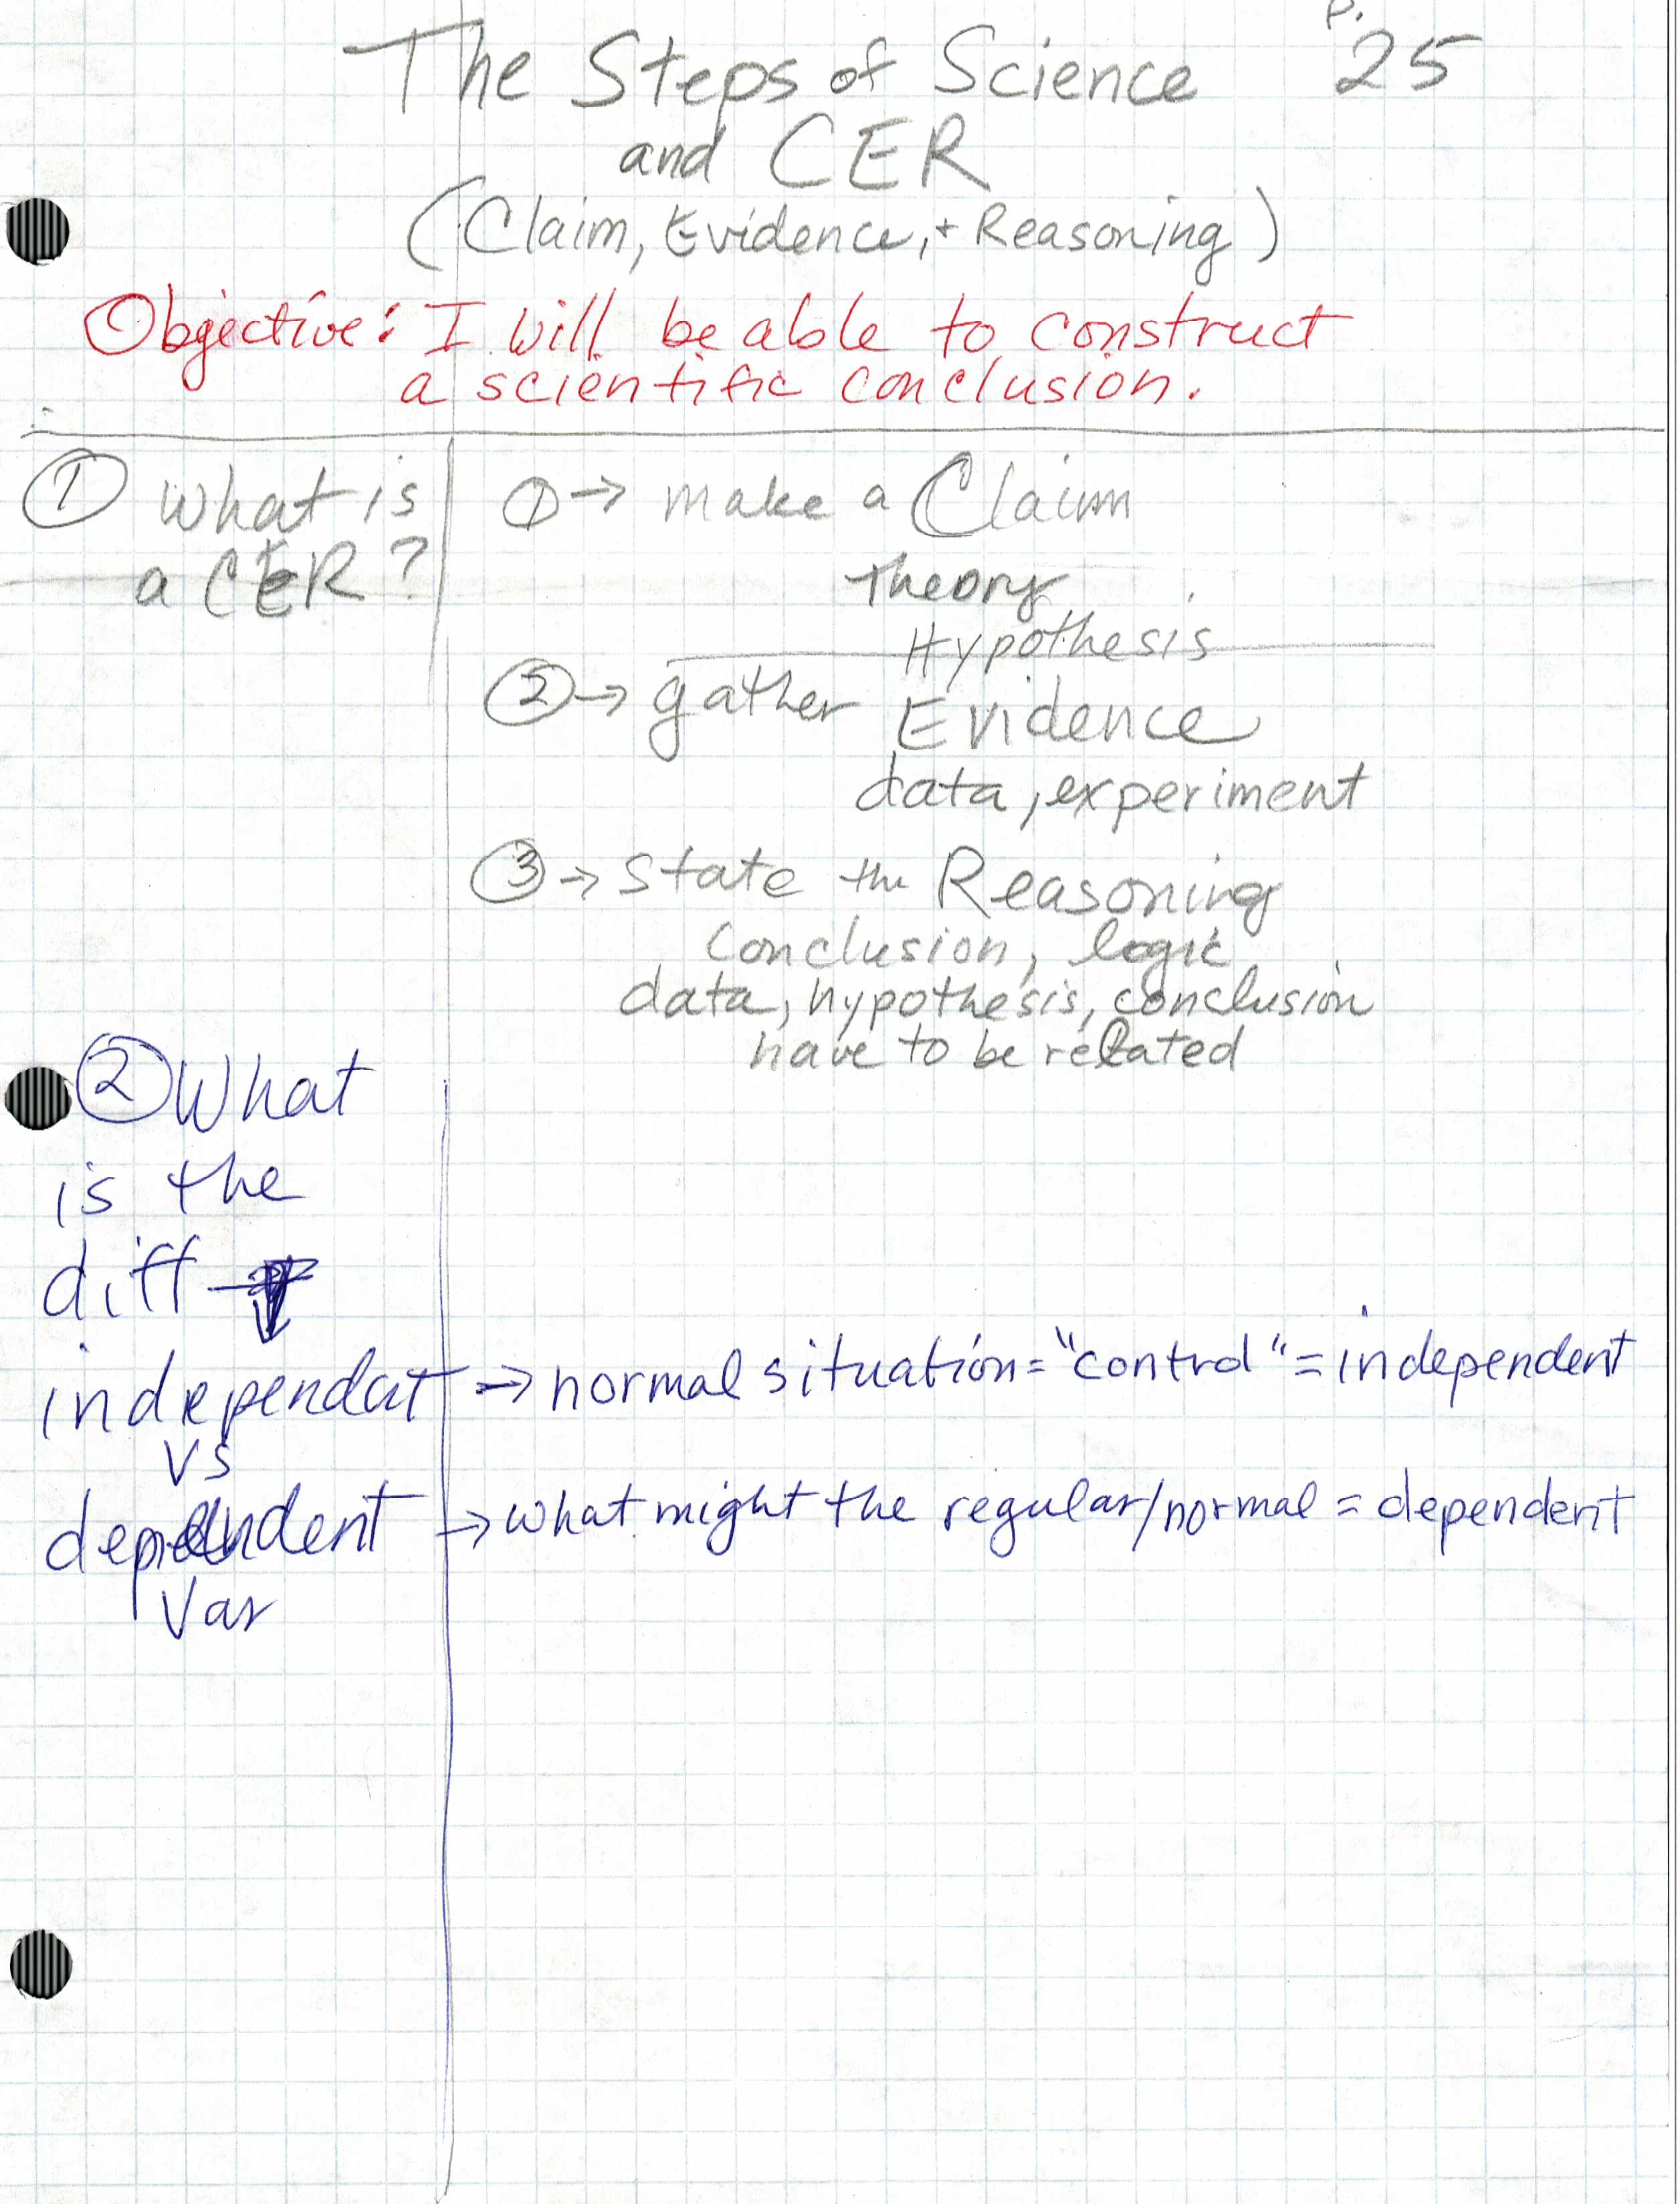 The Steps of Science P. 25
and CER
(Claim, Evidence, + Reasoning)
Objective: I will be able to construct
a scientific conclusion.
① What is
a CER?
① → make a Claim
Theory
Hypothesis
② → gather Evidence
data, experiment
③ → State the Reasoning
Conclusion, logic
data, hypothesis, conclusion
have to be related
② What
is the
diff →
independat → normal situation = "control" = independent
vs
dependent → what might the regular/normal = dependent
Var